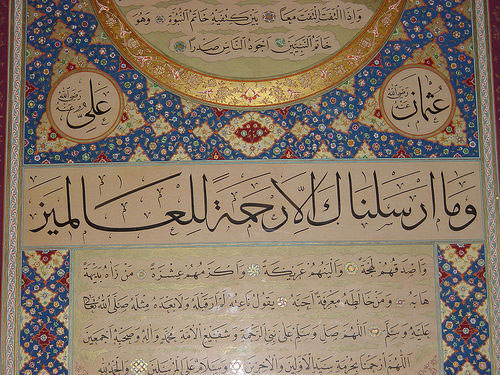 وَاِذَا الْتَفَتَ الْتَفَتَ مَعًا ۞ بَيْنَ كَتِفَيْهِ خَاتَمُ النُّبُوَّةِ ۞ وَهُوَ
خَاتَمُ النَّبِيِّينَ ۞ اَجْوَدُ النَّاسِ صَدْرًا ۞
عُثْمَان رضى الله عنه
عَلِيّ رضى الله عنه
وما ارسلناك الا رحمة للعالمين
وَاَصْدَقُهُمْ لَهْجَةً ۞ وَاَلْيَنُهُمْ عَرِيكَةً ۞ وَاَكْرَمُهُمْ عِشْرَةً ۞ مَنْ رَاٰهُ بَدِيهَةً
هَابَهُ ۞ وَمَنْ خَالَطَهُ مَعْرِفَةً اَحَبَّهُ ۞ يَقُولُ نَاعِتُهُ لَمْ اَرَ قَبْلَهُ وَلَا بَعْدَهُ مِثْلَهُ صَلَّى اللهُ تعالى
عَلَيْهِ وَسَلَّمَ ۞ اَللّٰهُمَّ صَلِّ وَسَلِّمْ عَلٰى نَبِيِّ الرَّحْمَةِ وَشَفِيعِ الْاُمَّةِ مُحَمَّدٍ وَاٰلِهِ وَصَحْبِهِ اَجْمَعِينَ
اَللّٰهُمَّ ارْحَمْنَا بِحُرْمَةِ سَيِّدِ الْاَوَّلِينَ وَالْاٰخِرِينَ ۞ وَسَلَامٌ عَلَى الْمُرْسَلِينَ ۞ وَالْحَمْدُ لِلّٰهِ